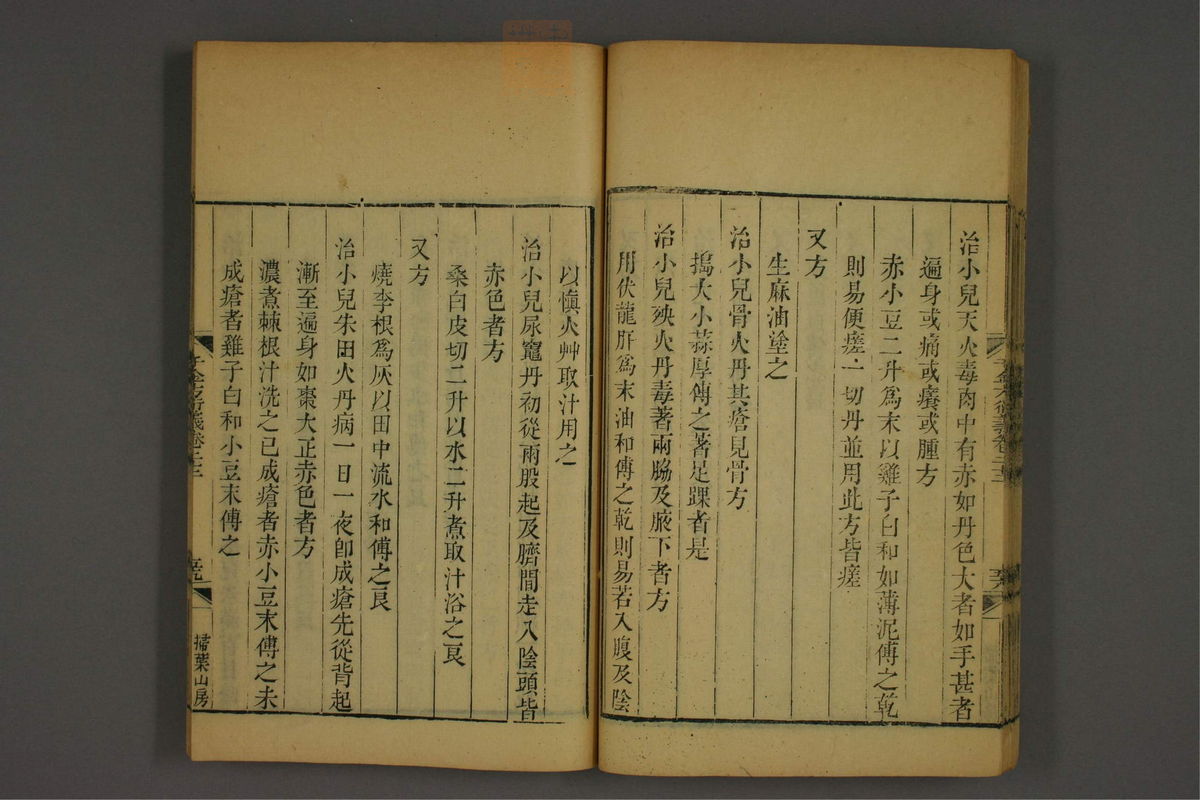 治小兒天火毒肉中有赤如丹色大者如手甚者
遍身或痛或癢或腫方
赤小豆二升爲末以雞子白和如薄泥傅之乾
則易便瘥一切丹並用此方皆瘥
又方
生麻油塗之
治小兒骨火丹其瘡見骨方
搗大小蒜厚傅之著足踝者是
治小兒殃火丹毒著兩脇及腋下者方
用伏龍肝爲末油和傅之乾則易若入腹及陰
以愼火艸取汁用之
治小兒尿竈丹初從兩股起及臍間走入陰頭皆
赤色者方
桑白皮切二升以水二升煮取汁浴之良
又方
燒李根爲灰以田中流水和傅之良
治小兒朱田火丹病一日一夜卽成瘡先從背起
漸至遍身如棗大正赤色者方
濃煮棘根汁洗之已成瘡者赤小豆末傅之未
成瘡者雞子白和小豆末傅之
掃葉山房